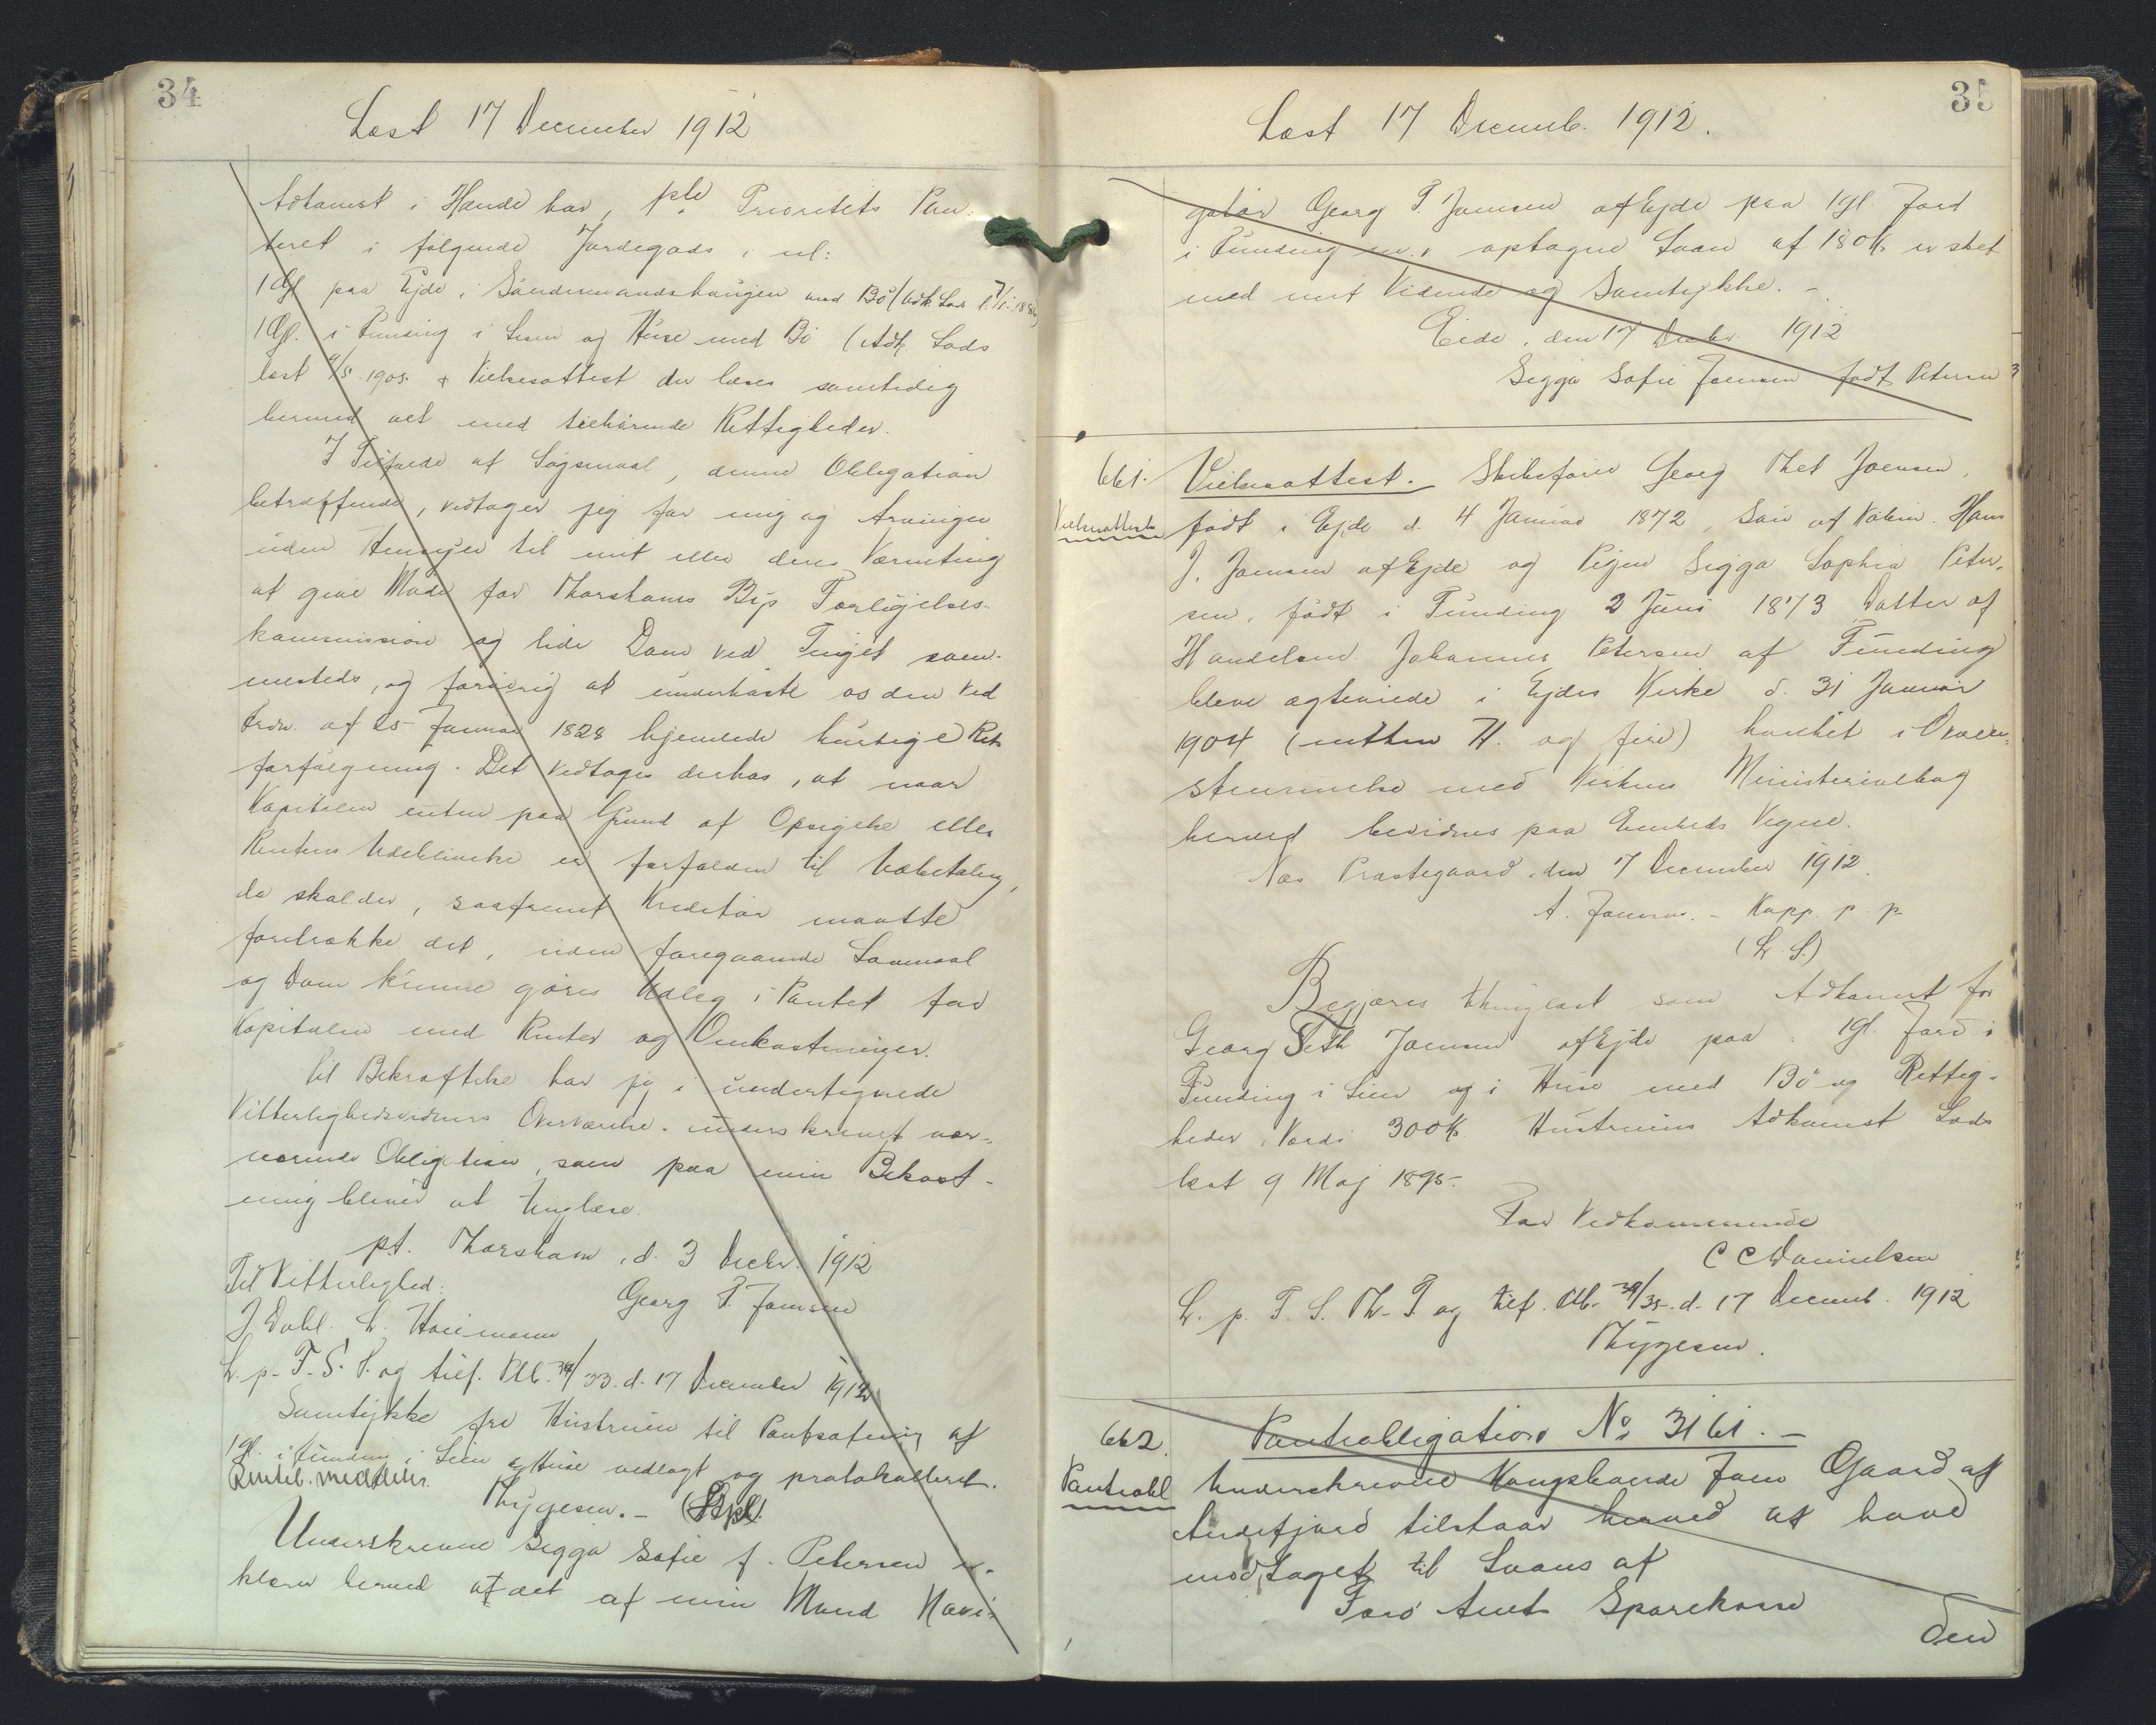 34
Læst 17 December 1912
Adkomst i Hænde har, pte Prioritets Pan-
teret i følgende Jordegods, nl:
1 Gl paa Ejde, Sandemandshaugen med Bö (Adk. Lods l. 7/5 1886)
1 Gl. i Funding i Sien og Huse med Bö (Adk Lods
læst 4/5 1905 & Vielsesattest der læses samtidig
hermed alt med tilhörende Rettigheder.
I Tilfælde af Søgsmaal, denne Obligation
betræffende, vedtager jeg for mig og Arvinger
uden Hensyn til mit eller deres Værneting
at give Møde for Thorshavns Byes Forligelses-
kommission og lide Dom ved Tinget sam-
mesteds, og forøvrig at underkaste os den ved
Frdn. af 25 Januar 1828 hjemlede hurtige Rets
forfølgning. Det vedtages derhos, at naar
Kapitalen enten paa Grund af Opsigelse eller
Rentens Udeblivelse er forfalden til Udbetaling,
da skal der, saafremt Kreditor maatte
foretrække det, uden foregaaende Lovmaal
og Dom kunne göres Udlæg i Pantet for
Kapitalen med Renter og Omkostninger.
Til Bekræftelse har jeg i undertegnede
Vitterlighedsvidners Overværelse underskrevet nær-
værende Obligation, som paa min Bekost-
ning bliver at tinglæse.
pt. Thorshavn, d. 3 Decbr. 1912
Til Vitterlighed:
Georg T. Joensen
J Dahl. L. Heinemann
L. p. F. S. T. og tilf. Pl. 34/33. d. 17 December 1912
Samtykke fra Hustruen til Pantsætning af
1 gl. i Funding i Sien & Huse vedlagt og protokolleret.
Rentel. meddeles.
Thygesen. –
Underskrevne Sigga Sofie f. Petersen er-
klærer herved at det af min Mand Navi-
35
Læst 17 Decemb. 1912.
gatör Georg T. Joensen af Ejde paa 1 gl. Jord
i Funding m. v. optagne Laan af 180 Kr er sket
med mit Vidende og Samtykke. –
Eide, den 17 Decbr. 1912
Sigga Sofie Joensen født Petersen
661.
Vielsesattest
Vielsesattest. Skibsfører Georg Thet Joensen,
født i Ejde d. 4 Januar 1872, Sön af Købm. Hans
J. Joensen af Ejde og Pigen Sigga Sophia Peter-
sen, født i Funding 2 Juni 1873 Datter af
Handelsm. Johannes Petersen af Funding
bleve ægteviede i Ejdes Kirke d. 31 Januar
1904 (nitten H. og fire) hvilket i Overens-
stemmelse med Kirkens Ministerialbog
herved bevidnes paa Embeds Vegne.
Næs Præstegaard, den 7 December 1912.
A. Joensen. – Kapp. p. p.
(L. S.)
Begjæres thinglæst som Adkomst for
Georg Seth Joensen af Ejde paa: 1 gl. Jord i
Funding i Sien og i Huse med Bö og Rettig-
heder, Værdi 300 Kr. Hustruens Adkomst Lods
læst 9 Maj 1895.
For Vedkommende
C C Danielsen
L. p. F. S. Th. T og tilf. Pl. 34/35. d. 17 Decemb. 1912
Thygesen.
662.
Pantobl
Pantobligation No 3161. –
Underskrevne Kongsbonde Joen Gaard af
Andefjord tilstaar herved at have
modtaget til Laans af
Færø Amts Sparekasse
den